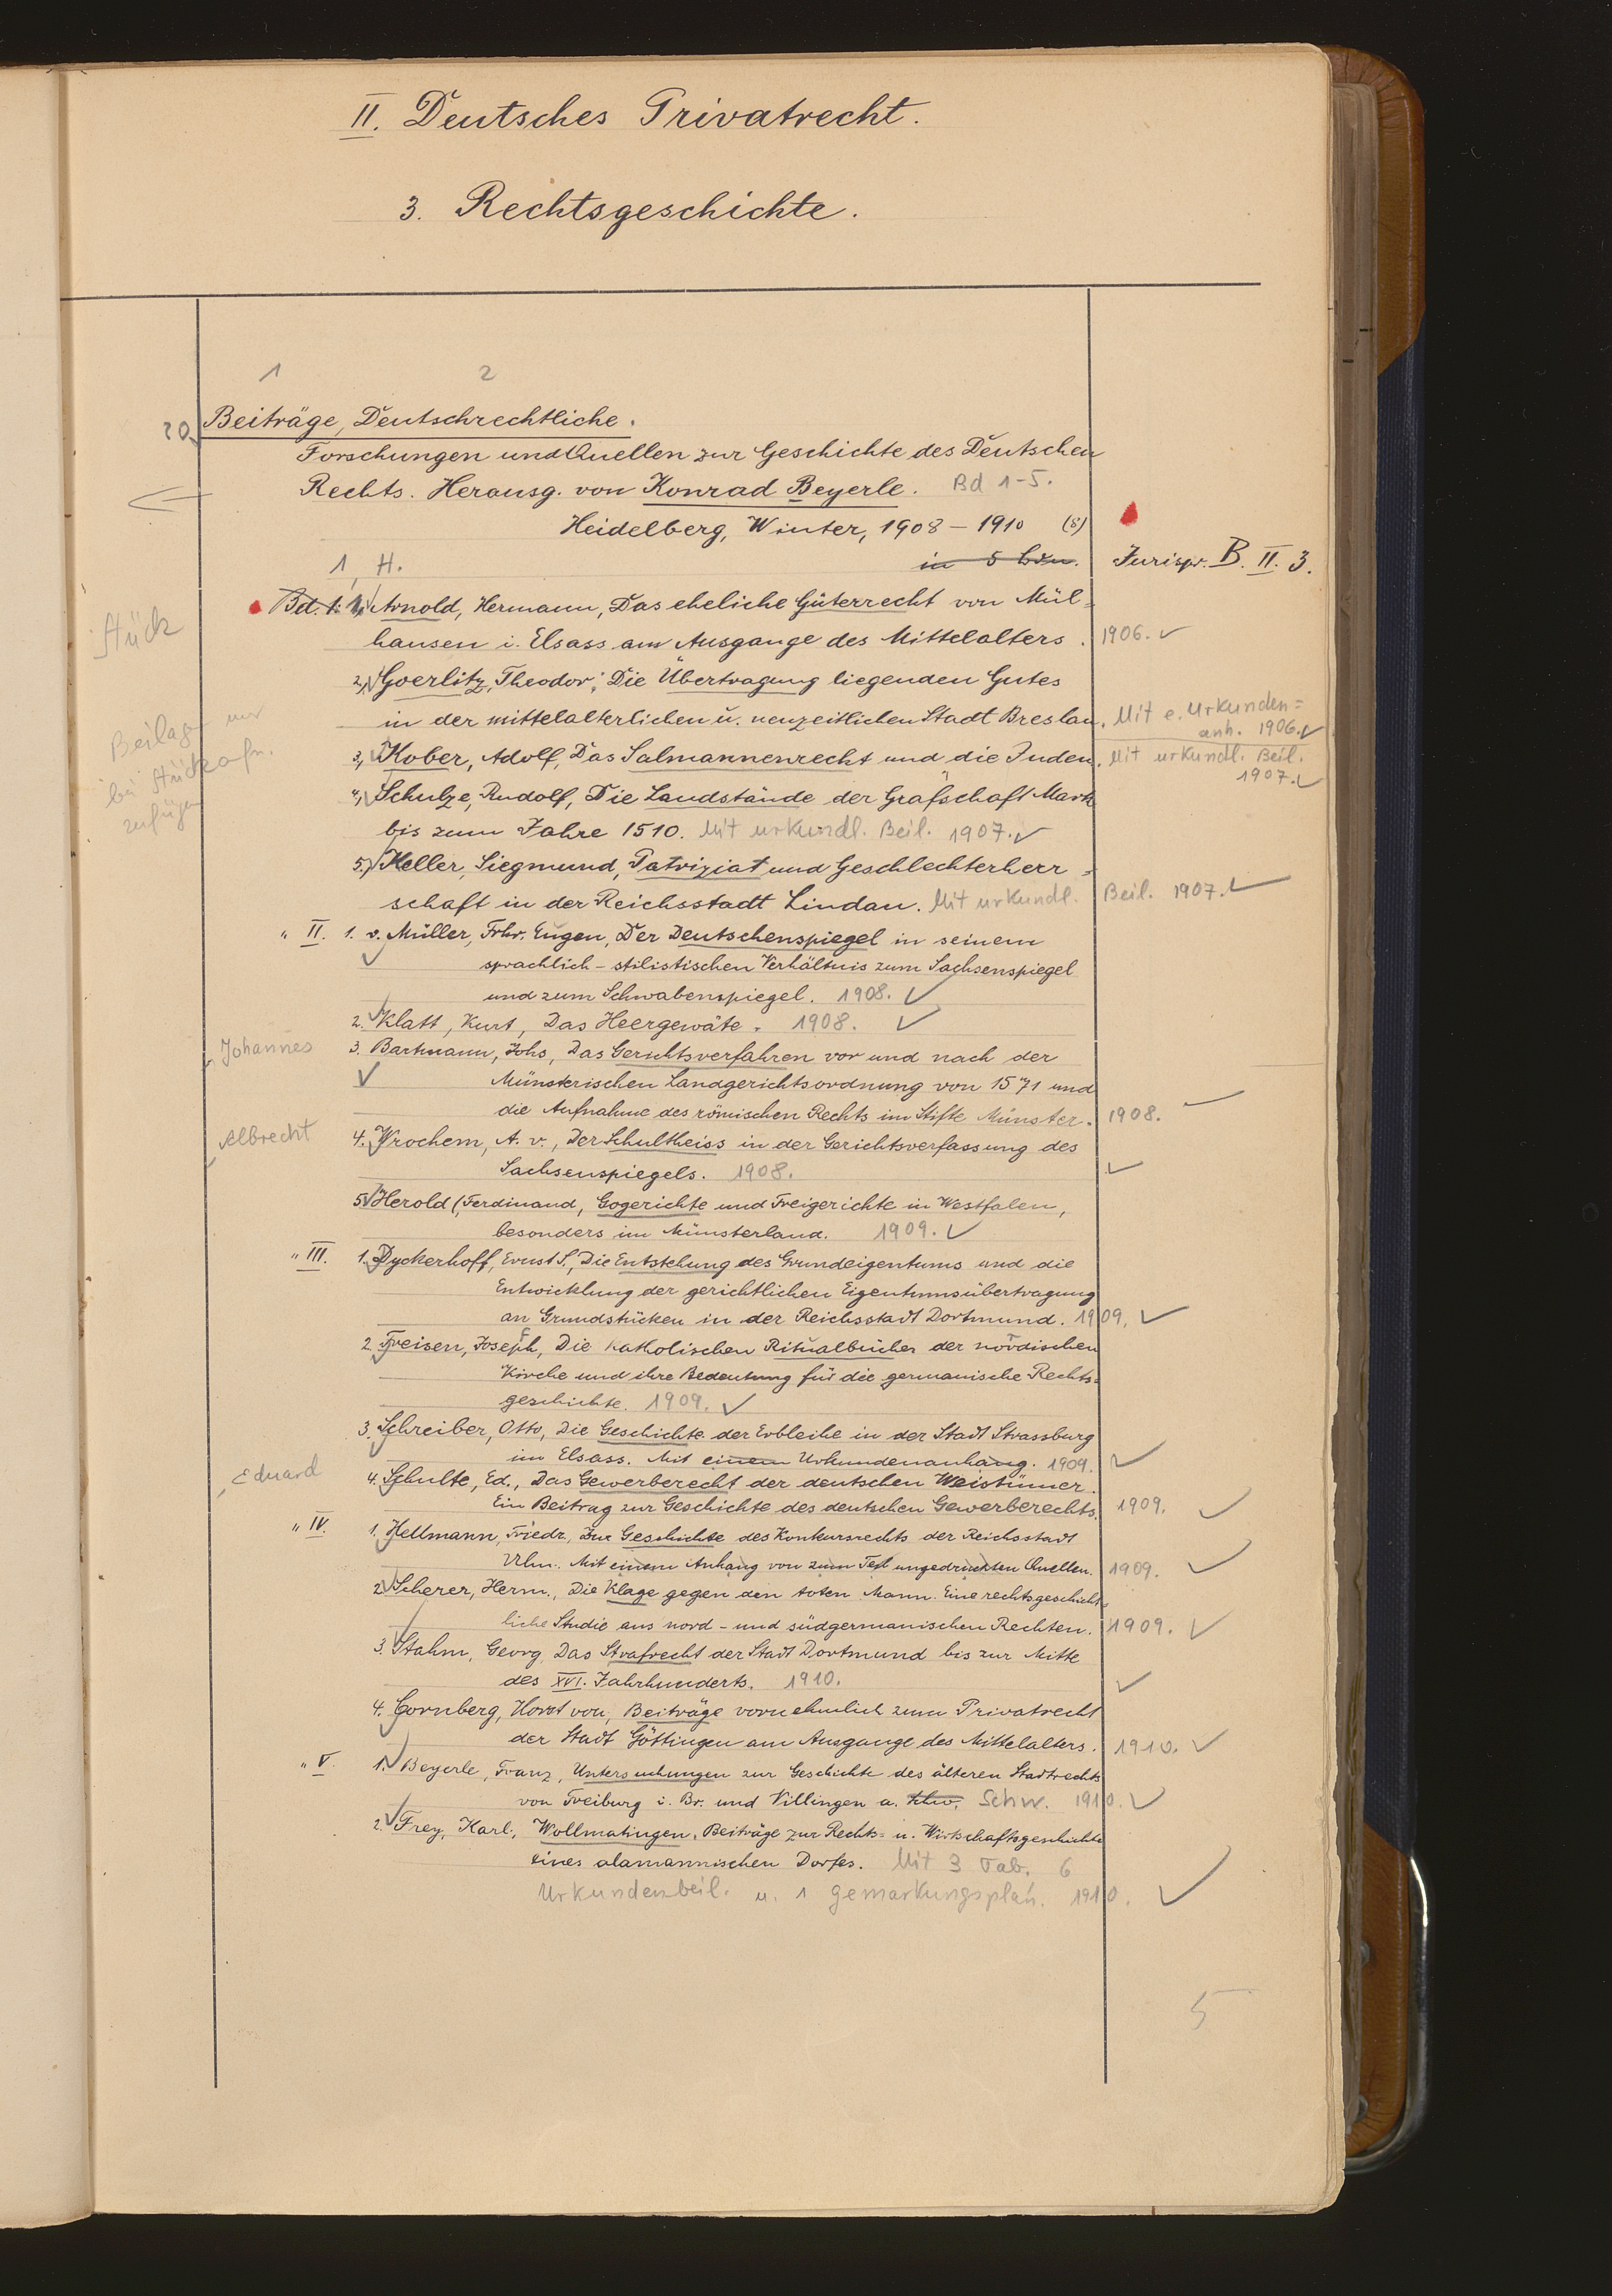 II. Deutsches Privatrecht.
3. Rechtsgeschichte.
1 2
20. Beiträge, Deutschrechtliche.
Forschungen und Quellen zur Geschichte des Deutschen
Rechts. Herausg. von Konrad Beyerle. Bd 1-5.
Heidelberg, Winter, 1908 – 1910 (8)
in 5 Bdn. Jurispr. B. II. 3.
1, H.
Bd. 1: 1, Arnold, Hermann, Das eheliche Güterrecht von Mül=
Stück
hausen i. Elsass am Ausgange des Mittelalters. 1906.
2, Goerlitz, Theodor, Die Übertragung liegenden Gutes
in der mittelalterlichen u. neuzeitlichen Stadt Breslau. Mit e. Urkunden=
anh. 1906.
Beilage nur
bei Stückafn.
zufügen
3, Kober, Adolf, Das Salmannenrecht und die Juden. Mit urkundl. Beil.
1907.
4, Schulze, Rudolf, Die Landstände der Grafschaft Mark
bis zum Jahre 1510. Mit urkundl. Beil. 1907.
5, Heller, Siegmund, Patriziat und Geschlechterherr=
schaft in der Reichsstadt Lindau. Mit urkundl. Beil. 1907.
" II. 1. v. Müller, Frhr. Eugen, Der Deutschenspiegel in seinem
sprachlich – stilistischen Verhältnis zum Sachsenspiegel
und zum Schwabenspiegel. 1908.
2. Klatt, Kurt, Das Heergewäte. 1908.
Johannes 3. Bartmann, Johs, Das Gerichtsverfahren vor und nach der
Münsterischen Landgerichtsordnung von 1571 und
die Aufnahme des römischen Rechts im Stifte Münster. 1908.
Albrecht 4. Wrochem, A. v., Der Schultheiss in der Gerichtsverfassung des
Sachsenspiegels. 1908.
5. Herold, Ferdinand, Gogerichte und Freigerichte in Westfalen,
besonders im Münsterland. 1909.
" III. 1. Dyckerhoff, Ernst S., Die Entstehung des Grundeigentums und die
Entwicklung der gerichtlichen Eigentumsübertragung
an Grundstücken in der Reichsstadt Dortmund. 1909.
2. Freisen, Joseph, Die katholischen Ritualbücher der nordischen
Kirche und ihre Bedeutung für die germanische Rechts=
geschichte. 1909.
3. Schreiber, Otto, Die Geschichte der Erbleihe in der Stadt Strassburg
im Elsass. Mit einem Urkundenanhang. 1909.
Eduard 4. Schulte, Ed., Das Gewerberecht der deutschen Weistümer.
Ein Beitrag zur Geschichte des deutschen Gewerberechts. 1909.
" IV. 1. Hellmann, Friedr., Zur Geschichte des Konkursrechts der Reichsstadt
Ulm. Mit einem Anhang von zum Teil ungedruckten Quellen. 1909.
2. Scherer, Herm., Die Klage gegen den toten Mann. Eine rechtsgeschicht=
liche Studie aus nord – und südgermanischen Rechten. 1909.
3. Stahm, Georg, Das Strafrecht der Stadt Dortmund bis zur Mitte
des XVI. Jahrhunderts. 1910.
4. Cornberg, Horst von, Beiträge vornehmlich zum Privatrecht
der Stadt Göttingen am Ausgange des Mittelalters. 1910.
" V. 1. Beyerle, Franz, Untersuchungen zur Geschichte des älteren Stadtrechts
von Freiburg i. Br. und Villingen a. Schw. 1910.
2. Frey, Karl, Wollmatingen. Beiträge zur Rechts= u. Wirtschaftsgeschichte
eines alamannischen Dorfes. Mit 3 Tab. 6
Urkundenbeil. u. 1 Gemarkungsplan. 1910.
5